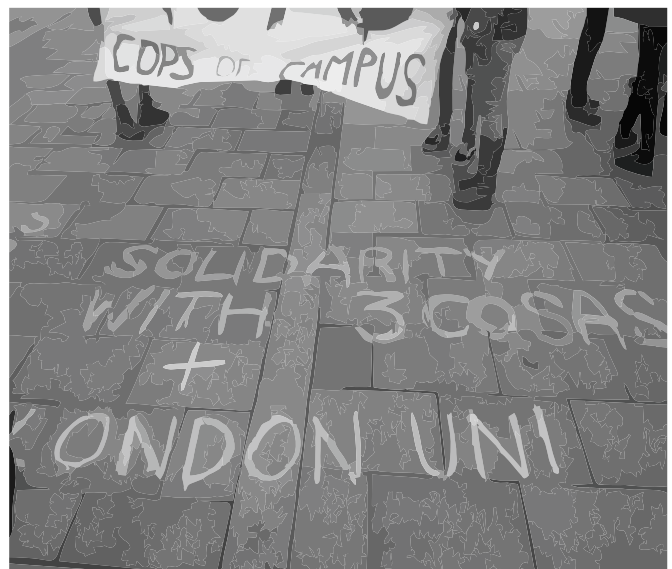 COPS OF CAMPUS
S
SOLIDARITY
WITH 3 COSAS
+
LONDON UNI